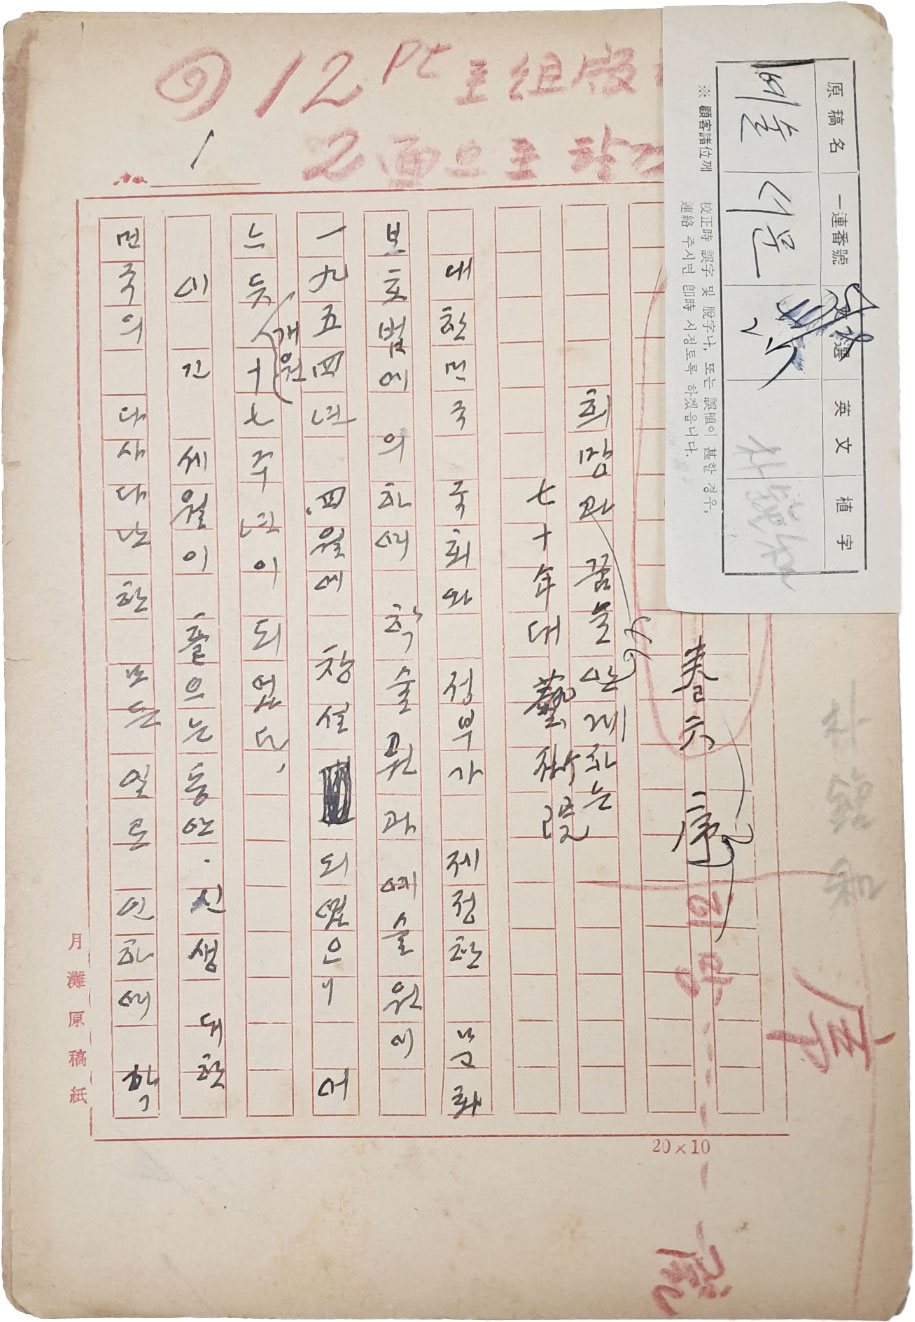 12 Pt 로 組版
2 面으로
No. 1
原稿名 一連番號 選 英文 植字
예술 서문
※ 顧客諸位께
校正時 誤字 및 脫字나, 또는 誤植이 甚한 경우,
連絡 주시면 卽時 시정토록 하겠읍니다.
序
희망과 꿈을 안게하는
七十年대 藝術院
대한민국 국회와 정부가 제정한 문화
보호법에 의하여 학술원과 예술원이
一九五四년 四월에 창설 되였으니 어
느듯 十七주년 개월이 되었다.
이 긴 세월이 흘으는동안. 신생 대한
민국의 다사다난한 모든 일로 인하여 학
月灘原稿紙
20×10
희망
序